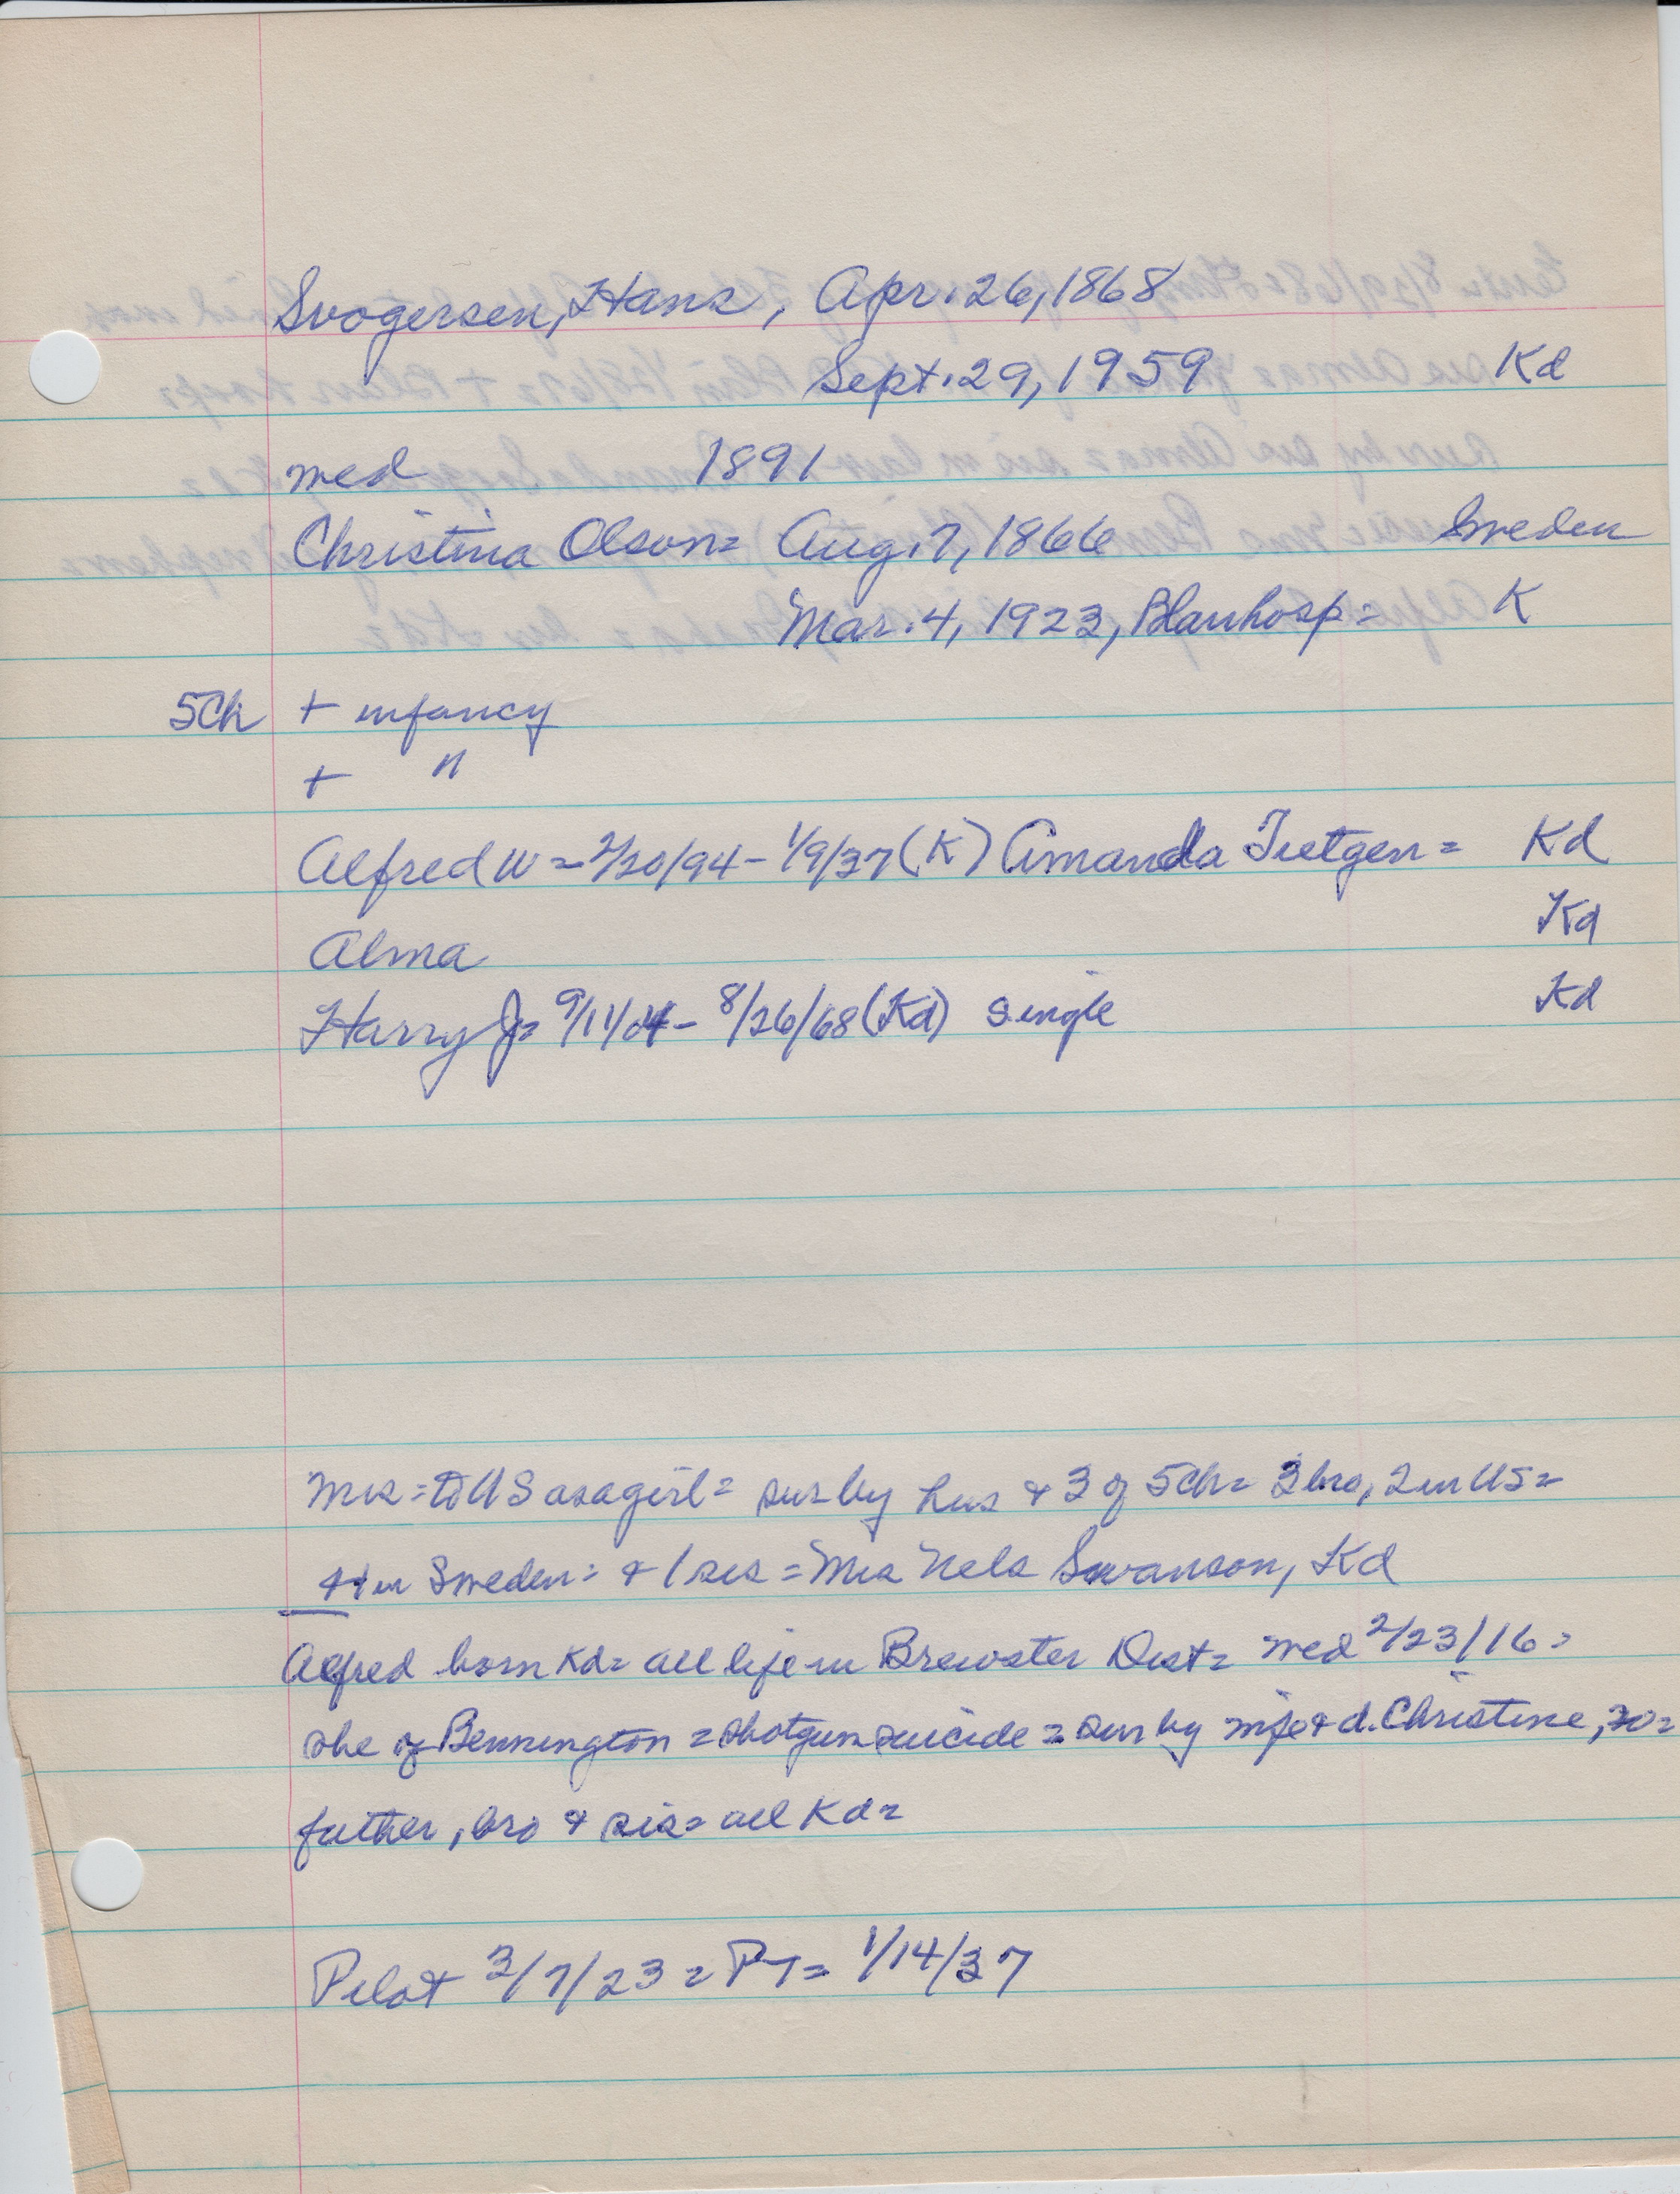 Svogersen, Hans, Apr. 26, 1868
Sept. 29, 1959 Kd
med 1891
Christina Olson= Aug. 7, 1866 Sweden
Mar. 4, 1923, Blairhosp= K
5Ch + infancy
+ "
Alfred W = 2/20/94 - 1/9/37 (K) Amanda Tietgen = Kd
Alma Kd
Harry J= 9/11/04 - 8/26/68 (Kd) single Kd
Mrs = to US as a girl = sur by hus + 3 of 5ch= 3 bro, 2 in US=
+1 in Sweden = + 1 sis = Mrs Nels Swanson, Kd
Alfred born Kd= all life in Brewster Dist= med 2/23/16=
she of Bennington = shotgun suicide = sur by wife + d. Christine, 20=
father, bro + sis= all Kd=
Pilot 3/7/23 = PT= 1/14/37